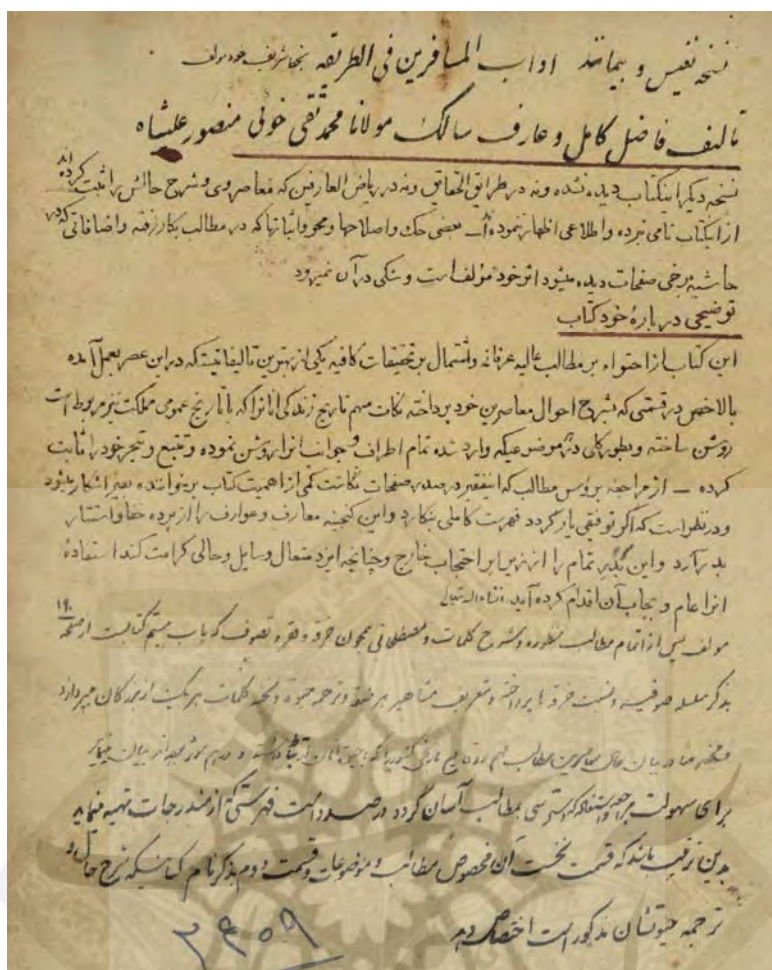 نسخه نفیس و بیمانند اداب المسافرین فی الطریقه بخط شریف خود مولف
تالیف فاضل کامل و عارف سالک مولانا محمد تقی خوئی منصور علیشاه
نسخه دیگر اینکتاب دیده نشده و نه در طرائق الحقایق و نه در ریاض العارفین که معاصر وی و شرح حالش را ثبت کرده‌اند
از اینکتاب نامی نبرده و اطلاعی اظهار ننموده‌اند ـ بعضی حک و اصلاحها و محو و اثباتها که در مطالب بکار رفته و اضافاتی که در
حاشیه برخی صفحات دیده میشود اثر خود مؤلف است و شکی در آن نمیرود
توضیحی درباره خود کتاب
این کتاب از احتواء بر مطالب عالیه عرفانیه و اشتمال بر تحقیقات کافیه یکی از بهترین تالیفاتیست که در این عصر بعمل آمده
بالاخص در قسمتی که بشرح احوال معاصرین خود پرداخته نکات مهم تاریخ زندگی آنانرا که با تاریخ عمومی مملکت نیز مربوط است
روشن ساخته و بطور کلی در هر موضوعیکه وارد شده تمام اطراف و جوانب آنرا روشن نموده و تتبع و تبحر خود را ثابت
کرده ـ از مراجعه برؤس مطالب که اینفقیر در صدر صفحات نگاشت کمی از اهمیت کتاب بر خواننده بصیر آشکار میشود
و در نظر است که اگر توفیقی یار گردد فهرست کاملی بنگارد و این گنجینه معارف و عوارف را از پرده خفا و استتار
بدر آرد و این را از زیر ابر احتجاب خارج و چنانچه ایزد متعال وسایل و حالی کرامت کند استفادهٔ
آنرا عام و بچاپ آن اقدام کرده آید انشاءاله تعالی
مولف پس از اتمام مطالب منظوره و شرح کلمات و مصطلحاتی همچون خرقه و فقر و تصوف که باب بیستم کتابست از صفحه ۱۹۰
بذکر سلسله صوفیه و نسبت خرقه‌ها پرداخته و بتعریف مشاهیر هر صنف و ترجمه حیوة و نخبه کلمات هر یک از بزرگان میپردازد
و در بیان حال معاصرین مطالب مهم و وقایع تاریخی کشور را که با حیوة آنان ارتباط داشته بیان مینماید
برای سهولت مراجعه و استفاده که دسترسی بمطالب آسان گردد در صدد است فهرستی که از مندرجات تهیه نماید
بدین ترتیب باشد که قسمت نخست آن مخصوص مطالب و موضوعات و قسمت دوم بذکر نام کسانیکه شرح حال و
ترجمه حیوتشان مذکور است اختصاص دهد
۳۴۰۵۹